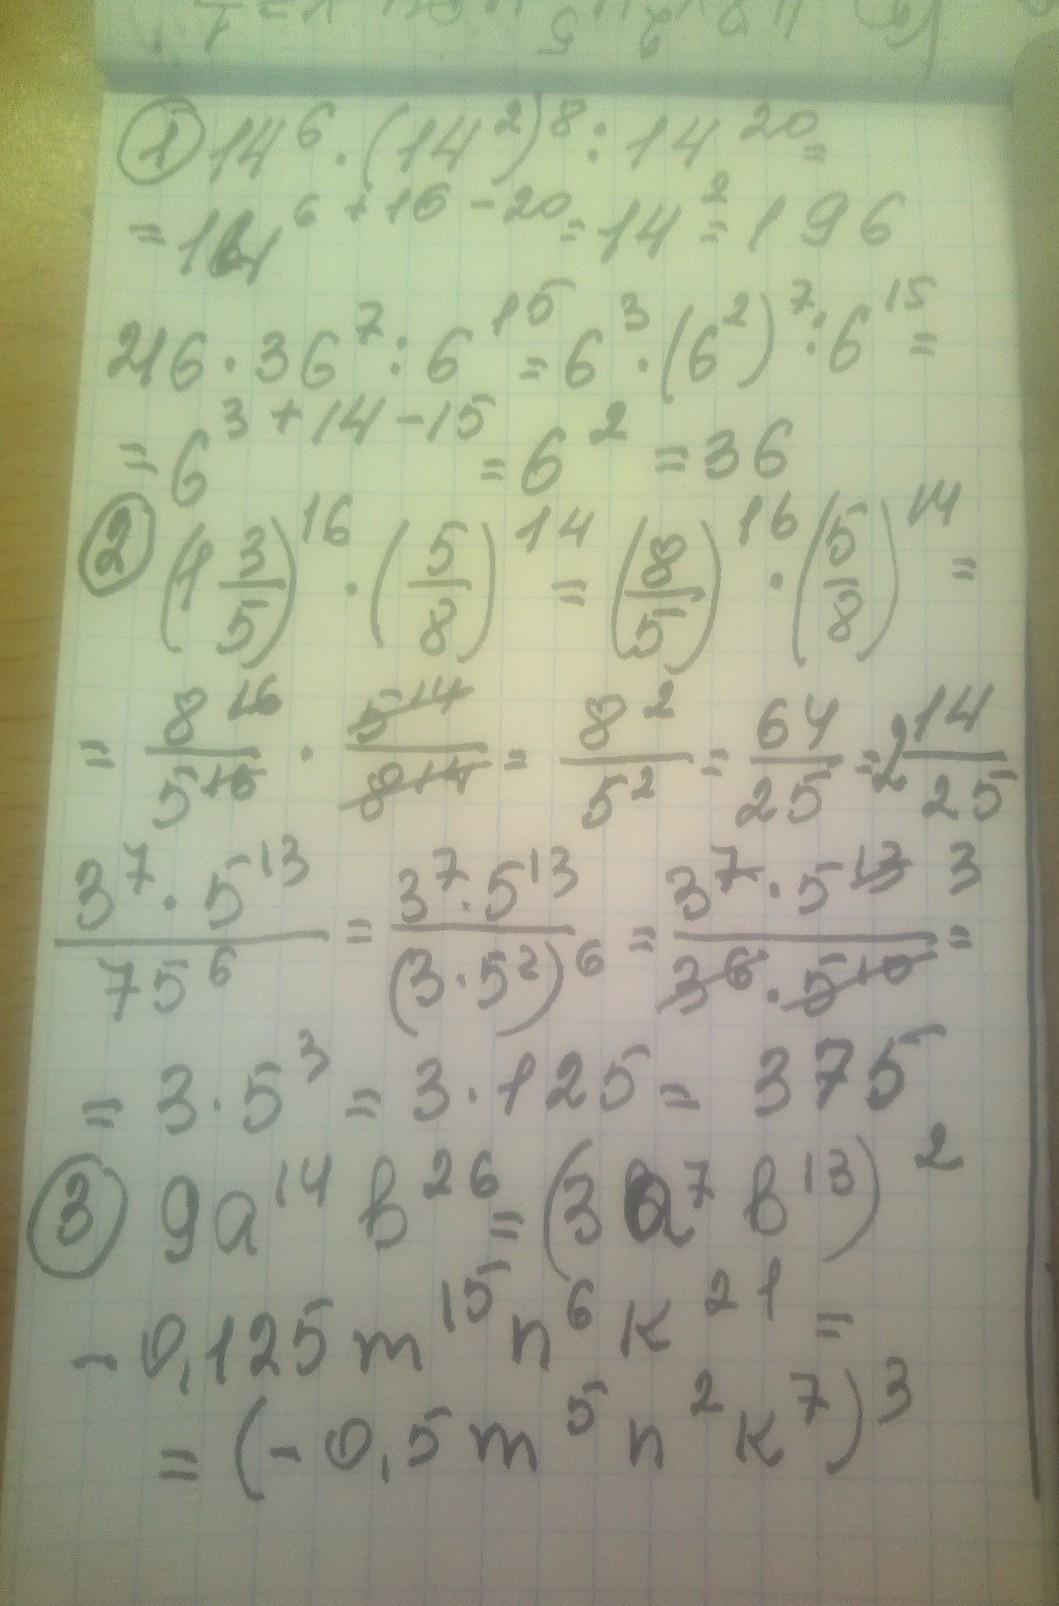 ① 14^6 · (14^2)^8 : 14^20 =
= 14^(6+16-20) = 14^2 = 196
216 · 36^7 : 6^15 = 6^3 · (6^2)^7 : 6^15 =
= 6^(3+14-15) = 6^2 = 36
② (1 3/5)^16 · (5/8)^14 = (8/5)^16 · (5/8)^14 =
= 8^16/5^16 · 5^14/8^14 = 8^2/5^2 = 64/25 = 2 14/25
3^7 · 5^13 / 75^6 = 3^7 · 5^13 / (3 · 5^2)^6 = 3^7 · 5^13 3 / 3^6 · 5^10 =
= 3 · 5^3 = 3 · 125 = 375
③ 9a^14 b^26 = (3a^7 b^13)^2
- 0,125 m^15 n^6 k^21 =
= (- 0,5 m^5 n^2 k^7)^3